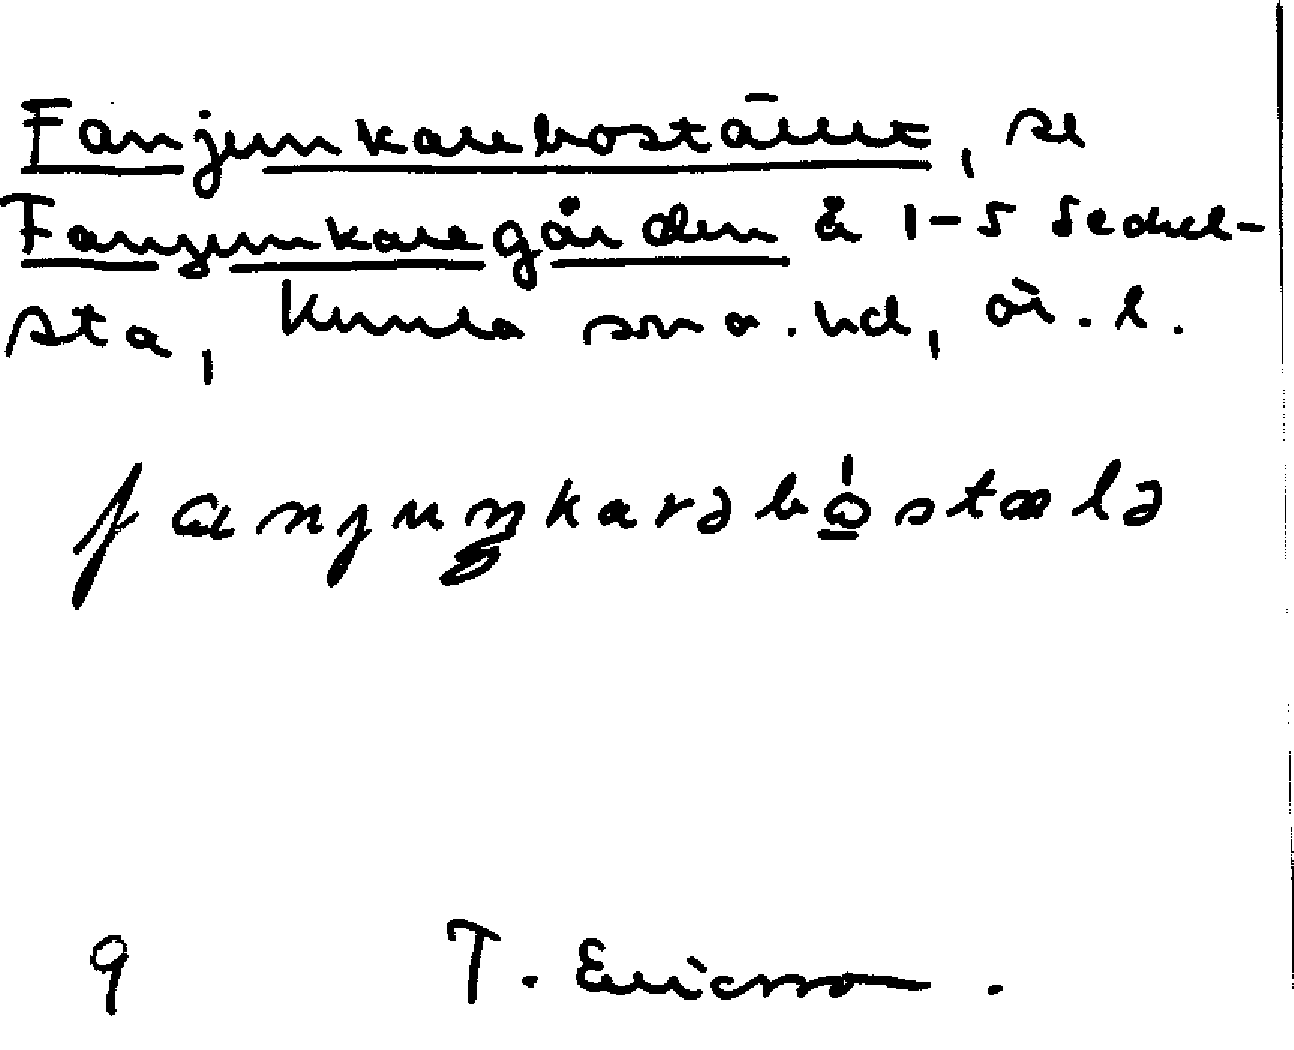 Fanjunkarebostället, se
Fanjunkaregården å 1-5 Sechel-
sta, Kumla sn o. hd, Ö. l.
fanjuŋkarəbòstælə
9 T. Ericsson.